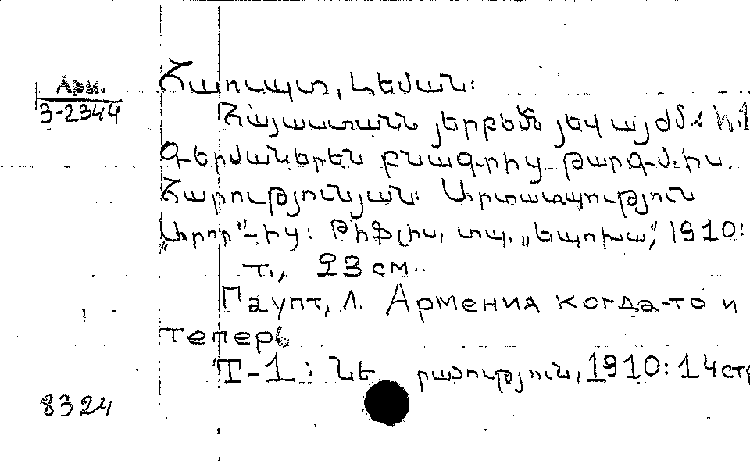 Арм.
3-2344
Հաուպտ, Լեման:
Հայաստանն յերբեմն յեվ այժմ: հ.1
Գերմաներեն բնագրից թարգմ. Խս.
Հարությունյան: Արտատպություն
„Մուրճ"-ից: Թիֆլիս, տպ. „Եպոխա", 1910:
т., 23 см.
Гаупт, Л. Армения когда-то и
теперь
Т-1: րածություն, 1910: 14 стр
8324